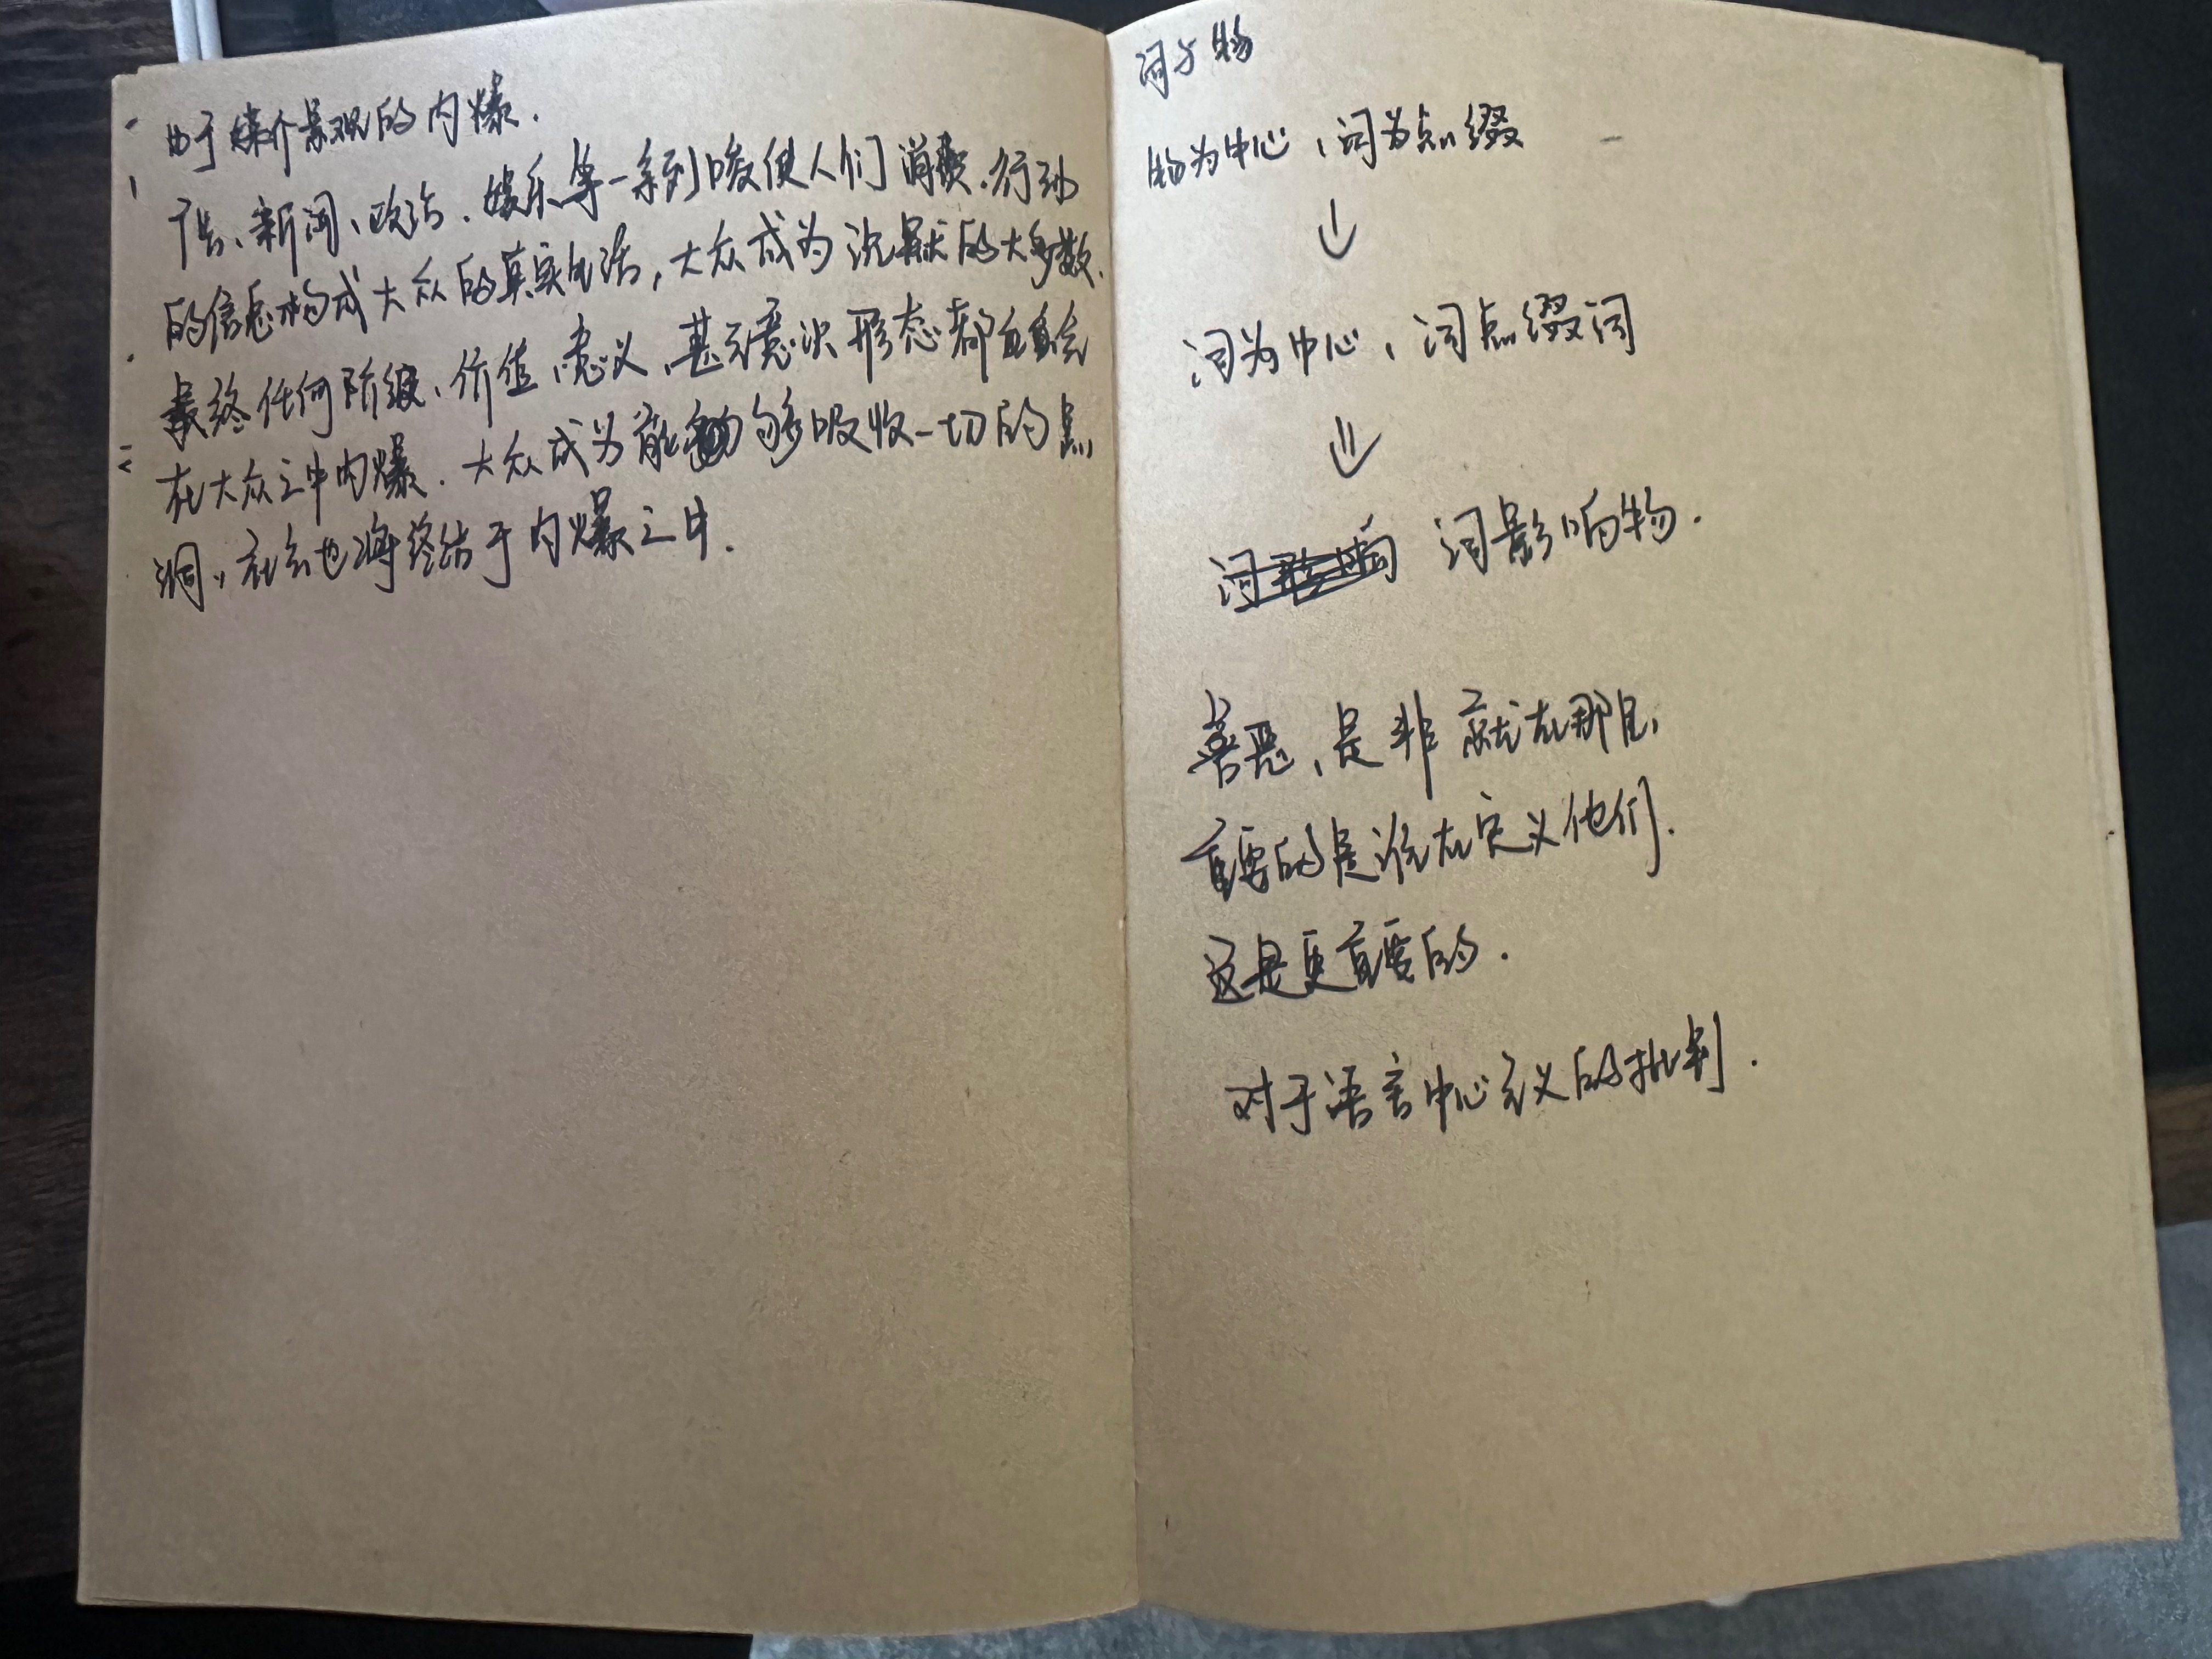 由于媒介景观的内爆.
广告、新闻、政治、娱乐等一系列唆使人们消费、行动
的信息构成大众的真实生活，大众成为沉默的大多数、
最终任何阶级、价值、意义、甚至意识形态都会
在大众之中内爆. 大众成为能够吸收一切的黑
洞，社会也将终结于内爆之中.
词与物
物为中心，词为点缀
↓
词为中心，词点缀词
⇓
词影响物.
善恶、是非就在那里，
重要的是谁在定义他们.
这是更重要的.
对于语言中心主义的批判.